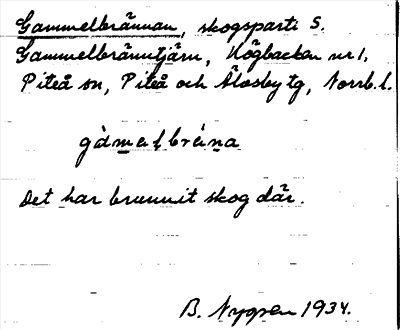 Gammelbrännan, skogsparti S.
Gammelbränntjärn, Högbacken nr 1,
Piteå sn, Piteå och Älvsby tg, Norrb. l.
gàmelbréna
Det har brunnit skog där.
B. Nygren 1934.